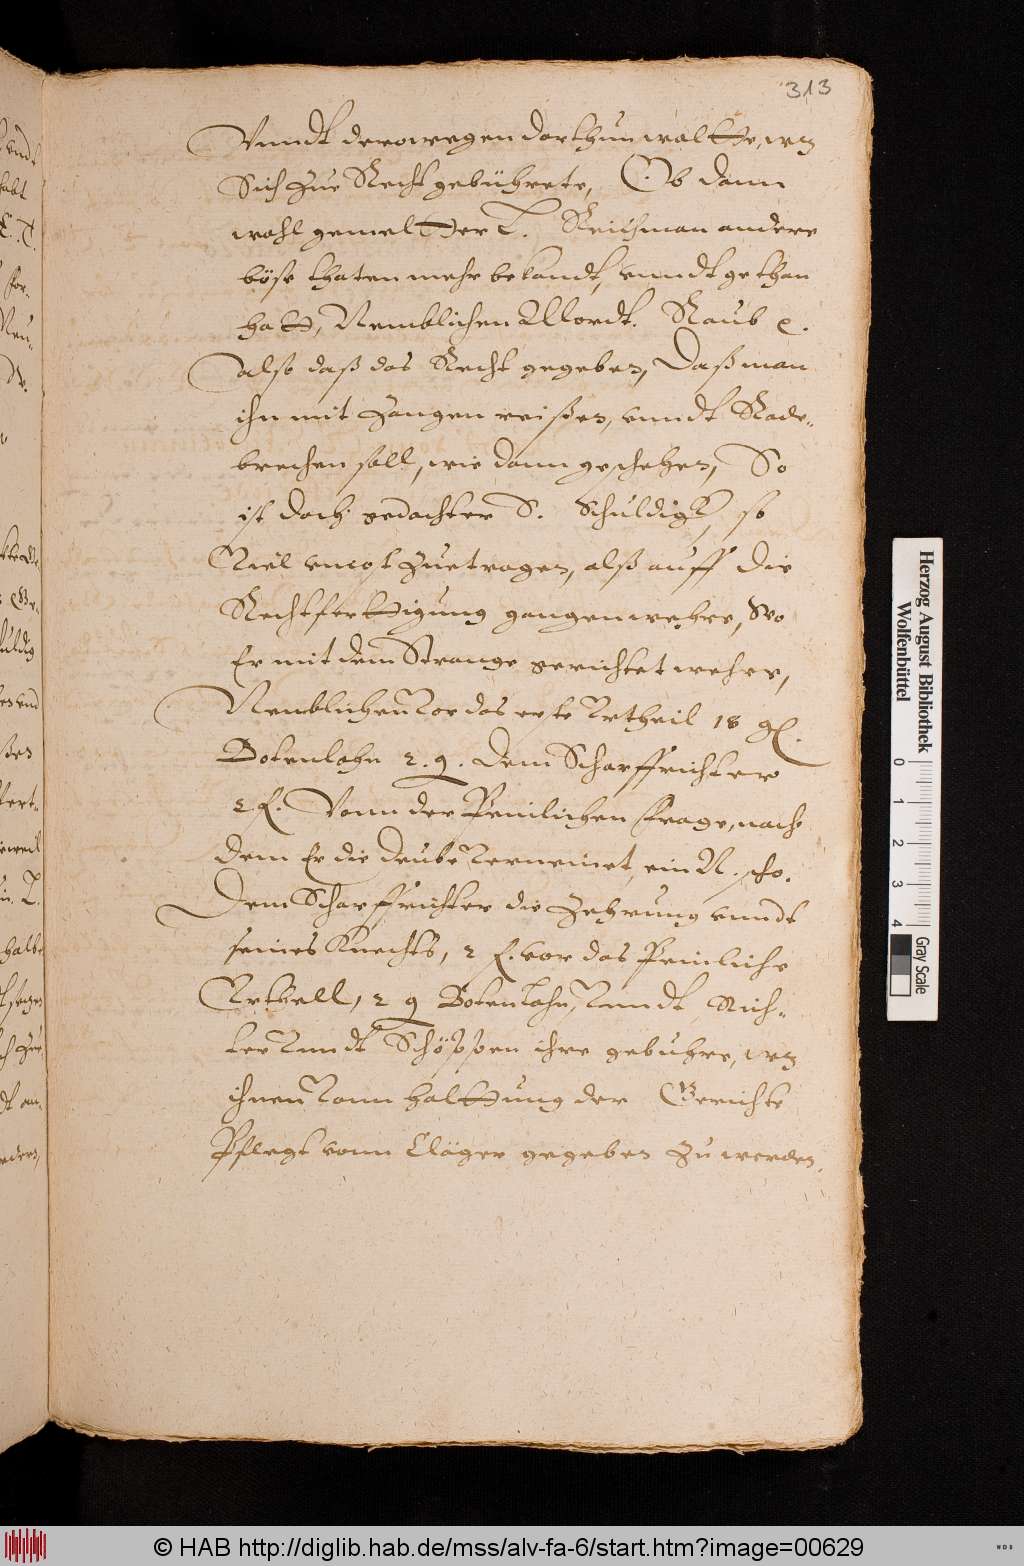 313
Vnndt derowegen darthun wolltte, wz
Sich Zue Recht gebührete, Ob dann
wohl gemeltter T. Reichman andere
böse thaten mehr bekandt, vnndt gethan
hatt, Nemblichen Mordt. Raub
also daß das Recht gegeben, Daß man
ihn mit Zangen reißen, vnndt Rade-
brechen soll, wie dann geschehen, So
ist doch gedachter S. Schuldigk, so
Viel vncost Zuetragen, alß auff die
Rechtferttigung gangen wehre, wo
Er mit dem Strange gerichtet wehre,
Nemblichen Vor das erste Vrtheil 18 gl.
Botenlohn 2. g. dem Scharffrichter
2 f. Vonn der Peinlichen Frage, nach
dem Er die deube Verneinet, ein N. sch.
Dem Scharffrichter die Zehrung vnndt
seines Knechts, 2 f. vor das Peinliche
Vrthell, 2 g Botenlohn, Vnndt Rich-
ter Vnndt Schöppen ihre gebuhre, wz
ihnen Vonn halttung der Gerichte
Pflegt vonn Cläger gegeben Zu werden.
Herzog August Bibliothek
Wolfenbüttel
0 1 2 3 4
Gray Scale
© HAB http://diglib.hab.de/mss/alv-fa-6/start.htm?image=00629